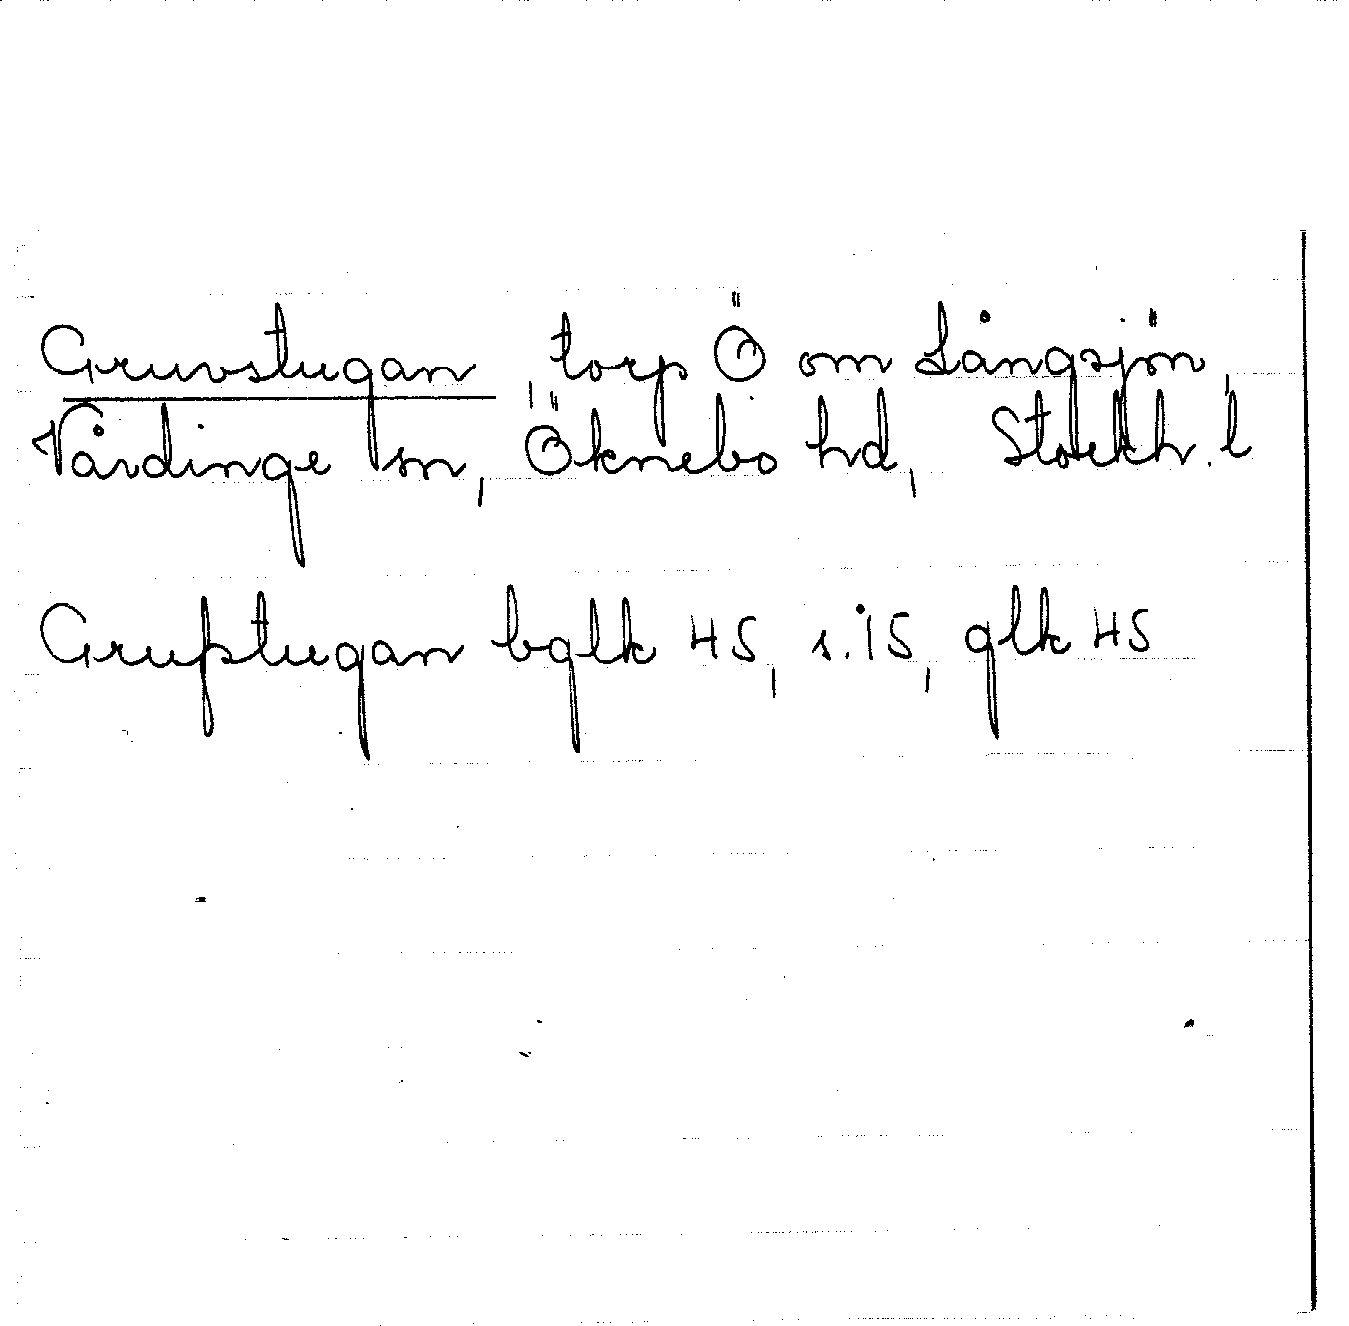 Gruvstugan, torp Ö om Långsjön,
Vårdinge sn, Öknebo hd, Stockh. l
Grufstugan bglk 45, s. 15, glk 45